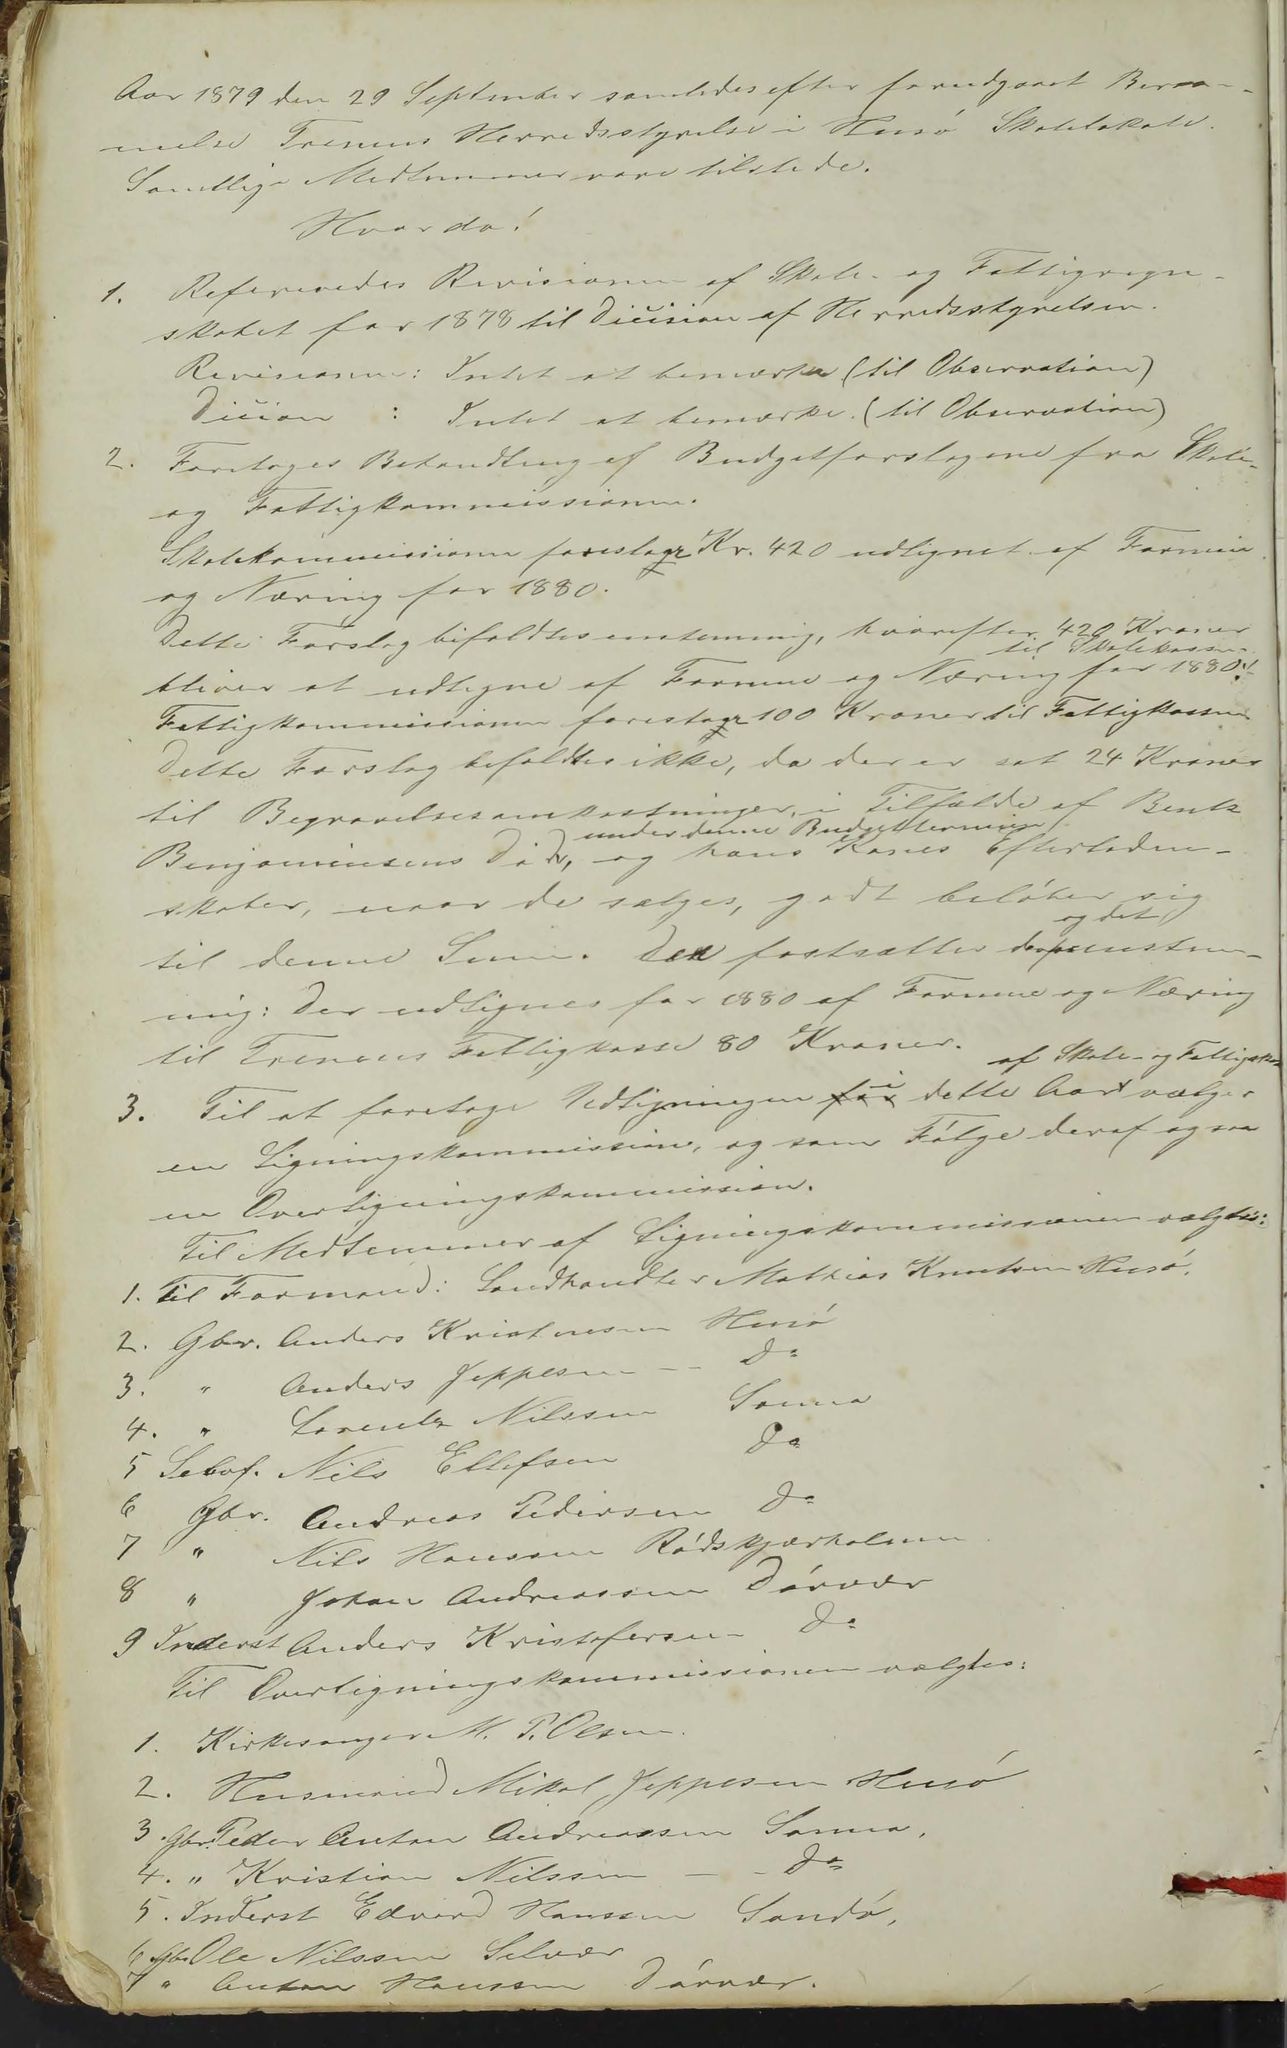 Aar 1879 den 29 September samledes efter foreudgaaet Beram-
melse Trænens Herredsstyrelse i Husö Skolelokale.
Samtlige Medlemmer vare tilstede.
Hvor da!
1. Refereredes Revisionen af Skole- og Fattigregn-
skabet for 1878 til Dicision af Herredsstyrelsen.
Revisionen: Intet at bemærke (til Observation)
Dicion : Intet at bemærke. (til Observation)
2. Foretoges Behandling af Budgetforslagene fra Skole-
og Fattigkommissionen.
Skolekommissionen foreslog Kr. 420 udlignet af Formue
og Næring for 1880.
Dette Forslag bifaldtes enstemmig, hvorefter 420 Kroner
til Skolekassen
bliver at udligne af Formue og Næring for 1880.
Fattigkommissionen foreslog 100 Kroner til Fattigkassen
Dette Forslag bifaldtes ikke, da der er sat 24 Kroner
til Begravelsesomkostninger, i Tilfælde af Bentz
under denne Budgettermin
Benjaminsens Död, og hans Kones Efterladen-
skaber, naar de sælges, godt belöber sig
og det
til denne Sum. Der fastsættes enstem-
mig: Der udlignes for 1880 af Formue og Næring
til Trænens Fattigkasse 80 Kroner.
af Skole- og Fattigskat
3. Til at foretage Udligningen for i dette Aar vælges
en Ligningskommission, og som Fölge deraf ogsaa
en Overligningskommission.
Til Medlemmer af Ligningskommissionen valgtes:
1. Til Formand: Landhandler Mathias Knutsen Husö.
2. Gbr. Anders Kristensen Husö
3. " Anders Jeppesen — Do
4. " Lorentz Nilssen Sanna
5 Selvf. Nils Ellefsen Do
6 Gbr. Andreas Pedersen Do
7 " Nils Hanssen Rödskjærholmen
8 " Johan Andreassen Dörvær
9 Inderst Anders Kristofersen Do
Til Overligningskommissionen valgtes:
1. Kirkesanger M. P. Olsen.
2. Husmand Mikal Jeppesen Husö
3. Gbr. Peder Anton Andreassen Sanna,
4. " Kristian Nilssen — Do
5. Inderst Edvard Hanssen Sandö,
6 Gbr Ole Nilssen Selvær
7 " Anton Hanssen Dörvær.